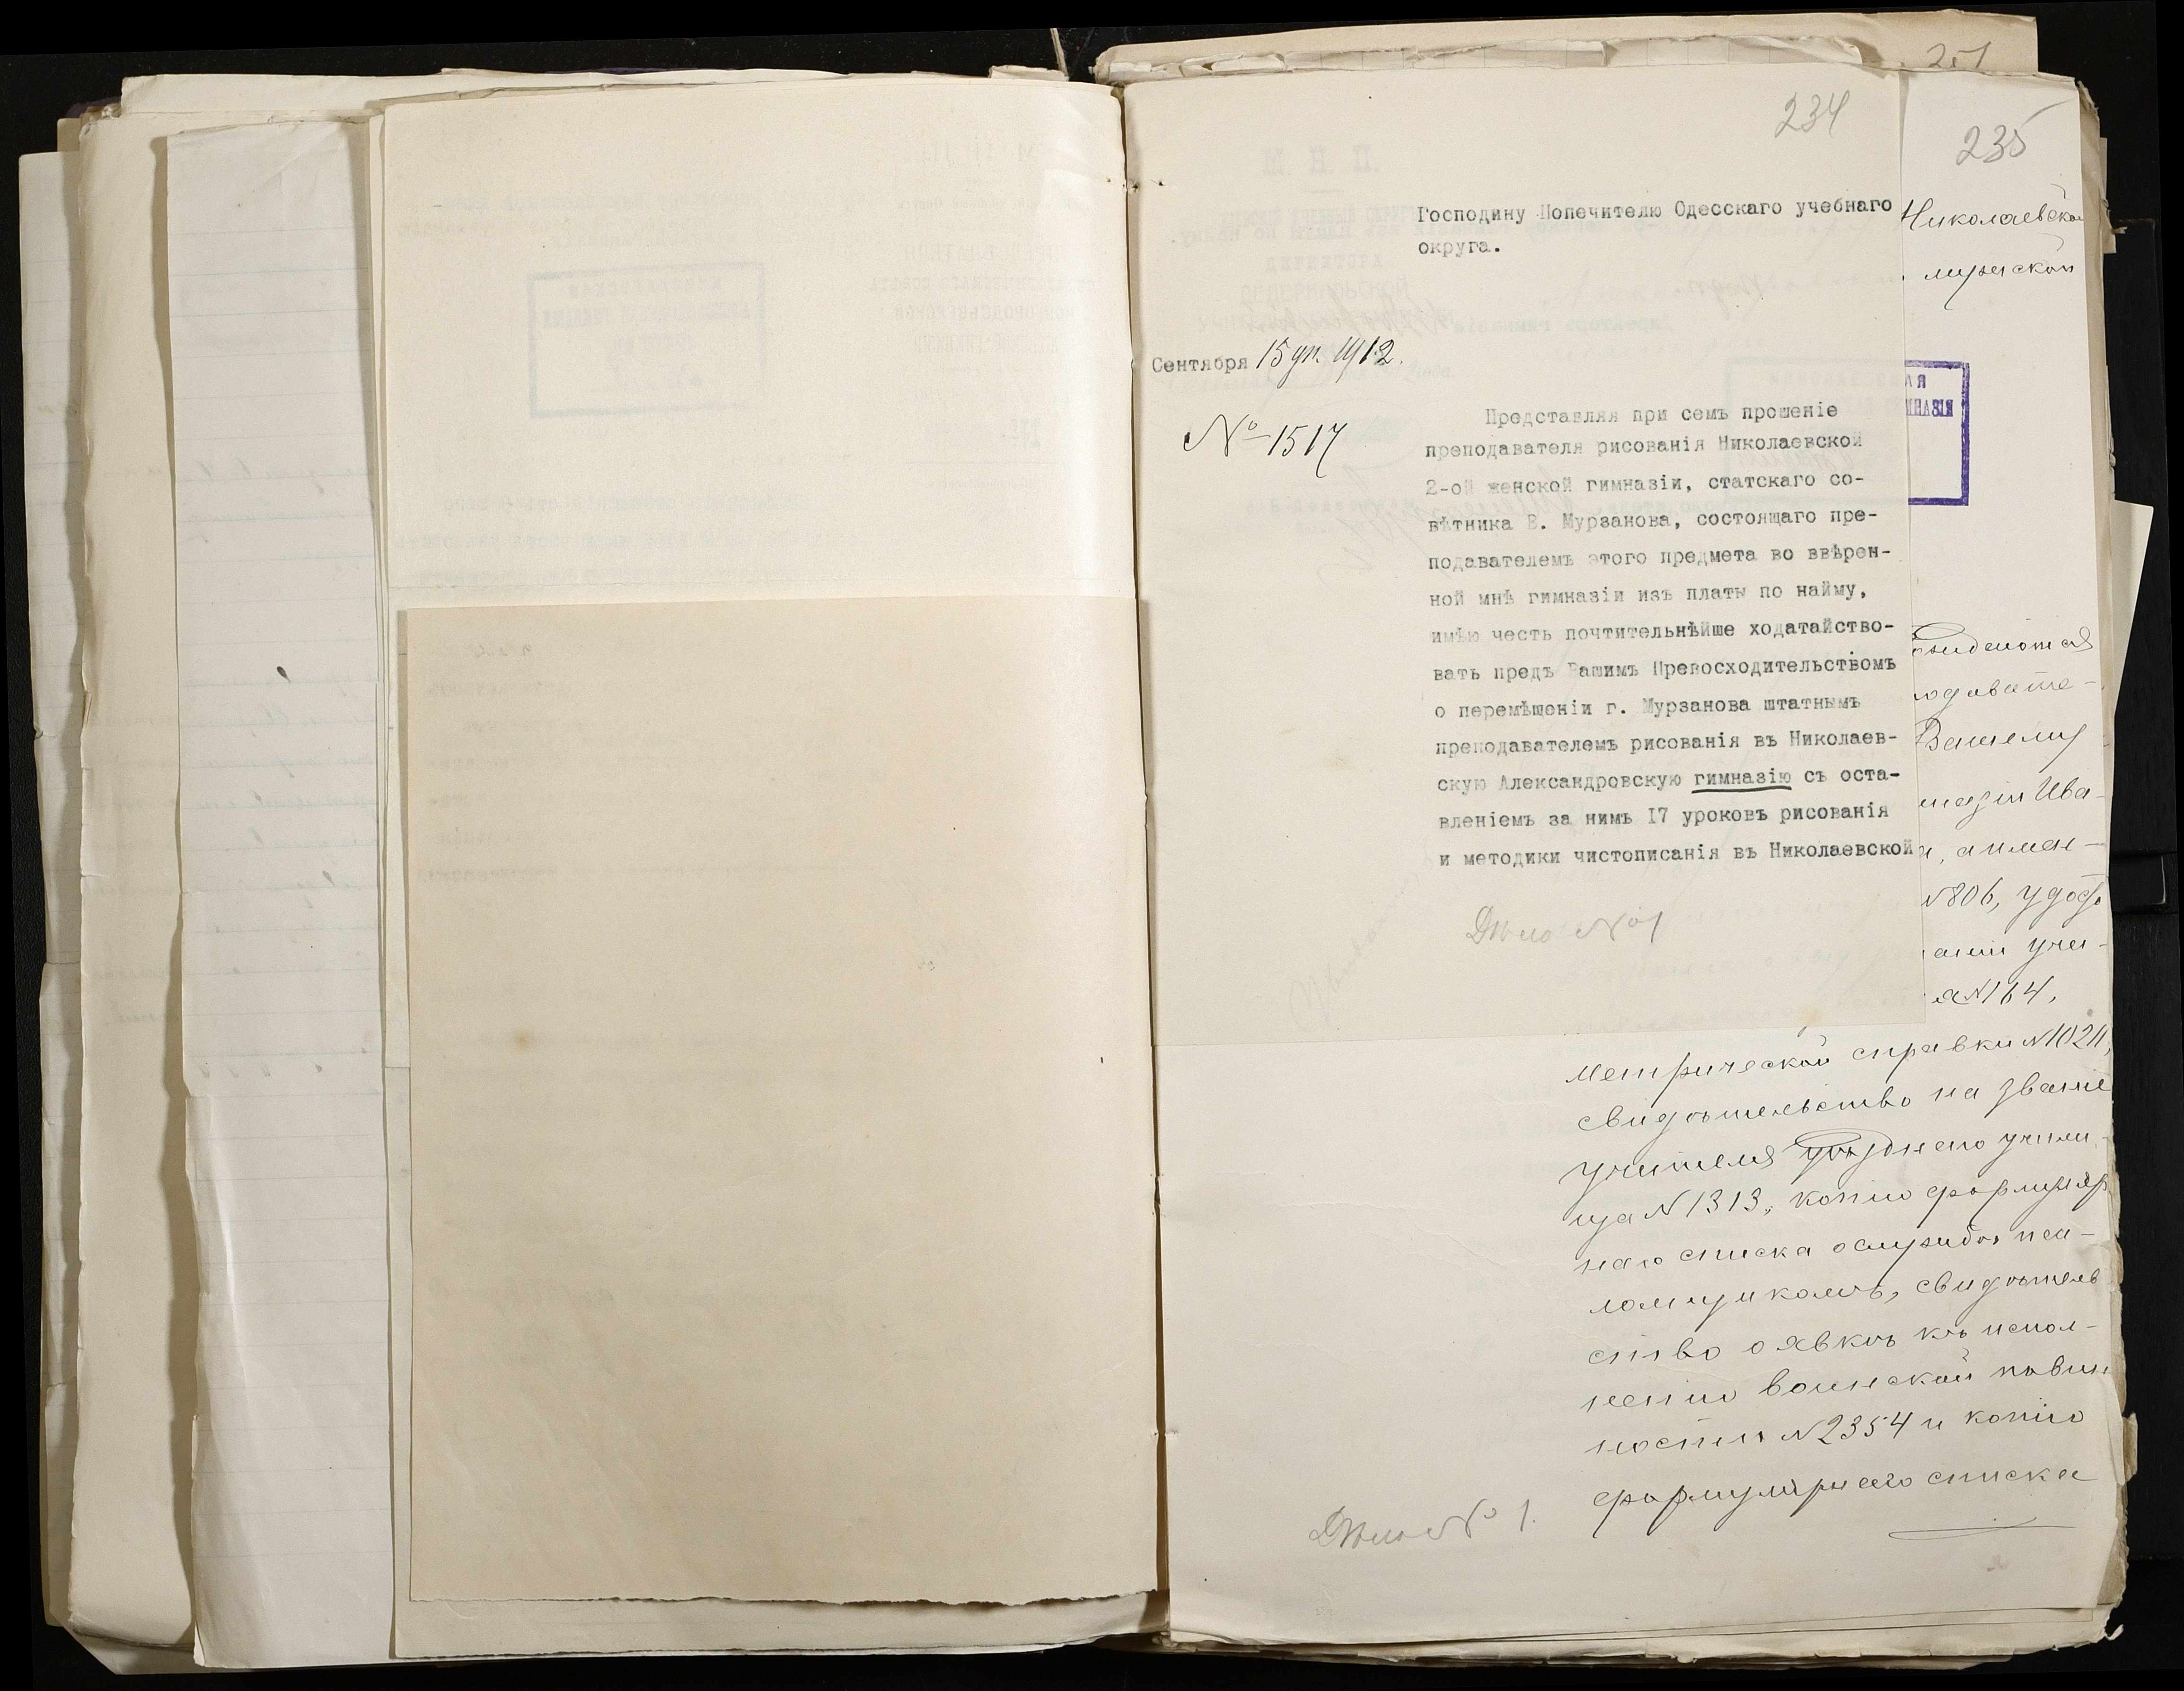 251
234
235
Господину Попечителю Одесскаго учебнаго
округа.
Сентября 15 дн. 1912.
№ 1517
Представляя при семъ прошеніе
преподавателя рисованія Николаевской
2-ой женской гимназіи, статскаго со-
вѣтника В. Мурзанова, состоящаго пре-
подавателемъ этого предмета во ввѣрен-
ной мнѣ гимназіи изъ платы по найму,
имѣю честь почтительнѣйше ходатайство-
вать предъ Вашимъ Превосходительствомъ
о перемѣщеніи г. Мурзанова штатнымъ
преподавателемъ рисованія въ Николаев-
скую Александровскую гимназію съ оста-
вленіемъ за нимъ 17 уроковъ рисованія
и методики чистописанія въ Николаевской
Дѣло №1
Николаевской
АЯ
ИНАЗІЯ
одавате-
Вашему
мназіи Ива-
№806, удос
аніи учи-
№164,
метрической справки №1021,
свидѣтельство на званіе
учителя уѣзднаго учили-
ща №1313, копію формуляр
наго списка о службѣ пса-
ломщикомъ, свидѣтель
ство о явкѣ къ испол-
ненію воинской повин
ности №2354 и копію
формулярнаго списка
Дѣло № 1.